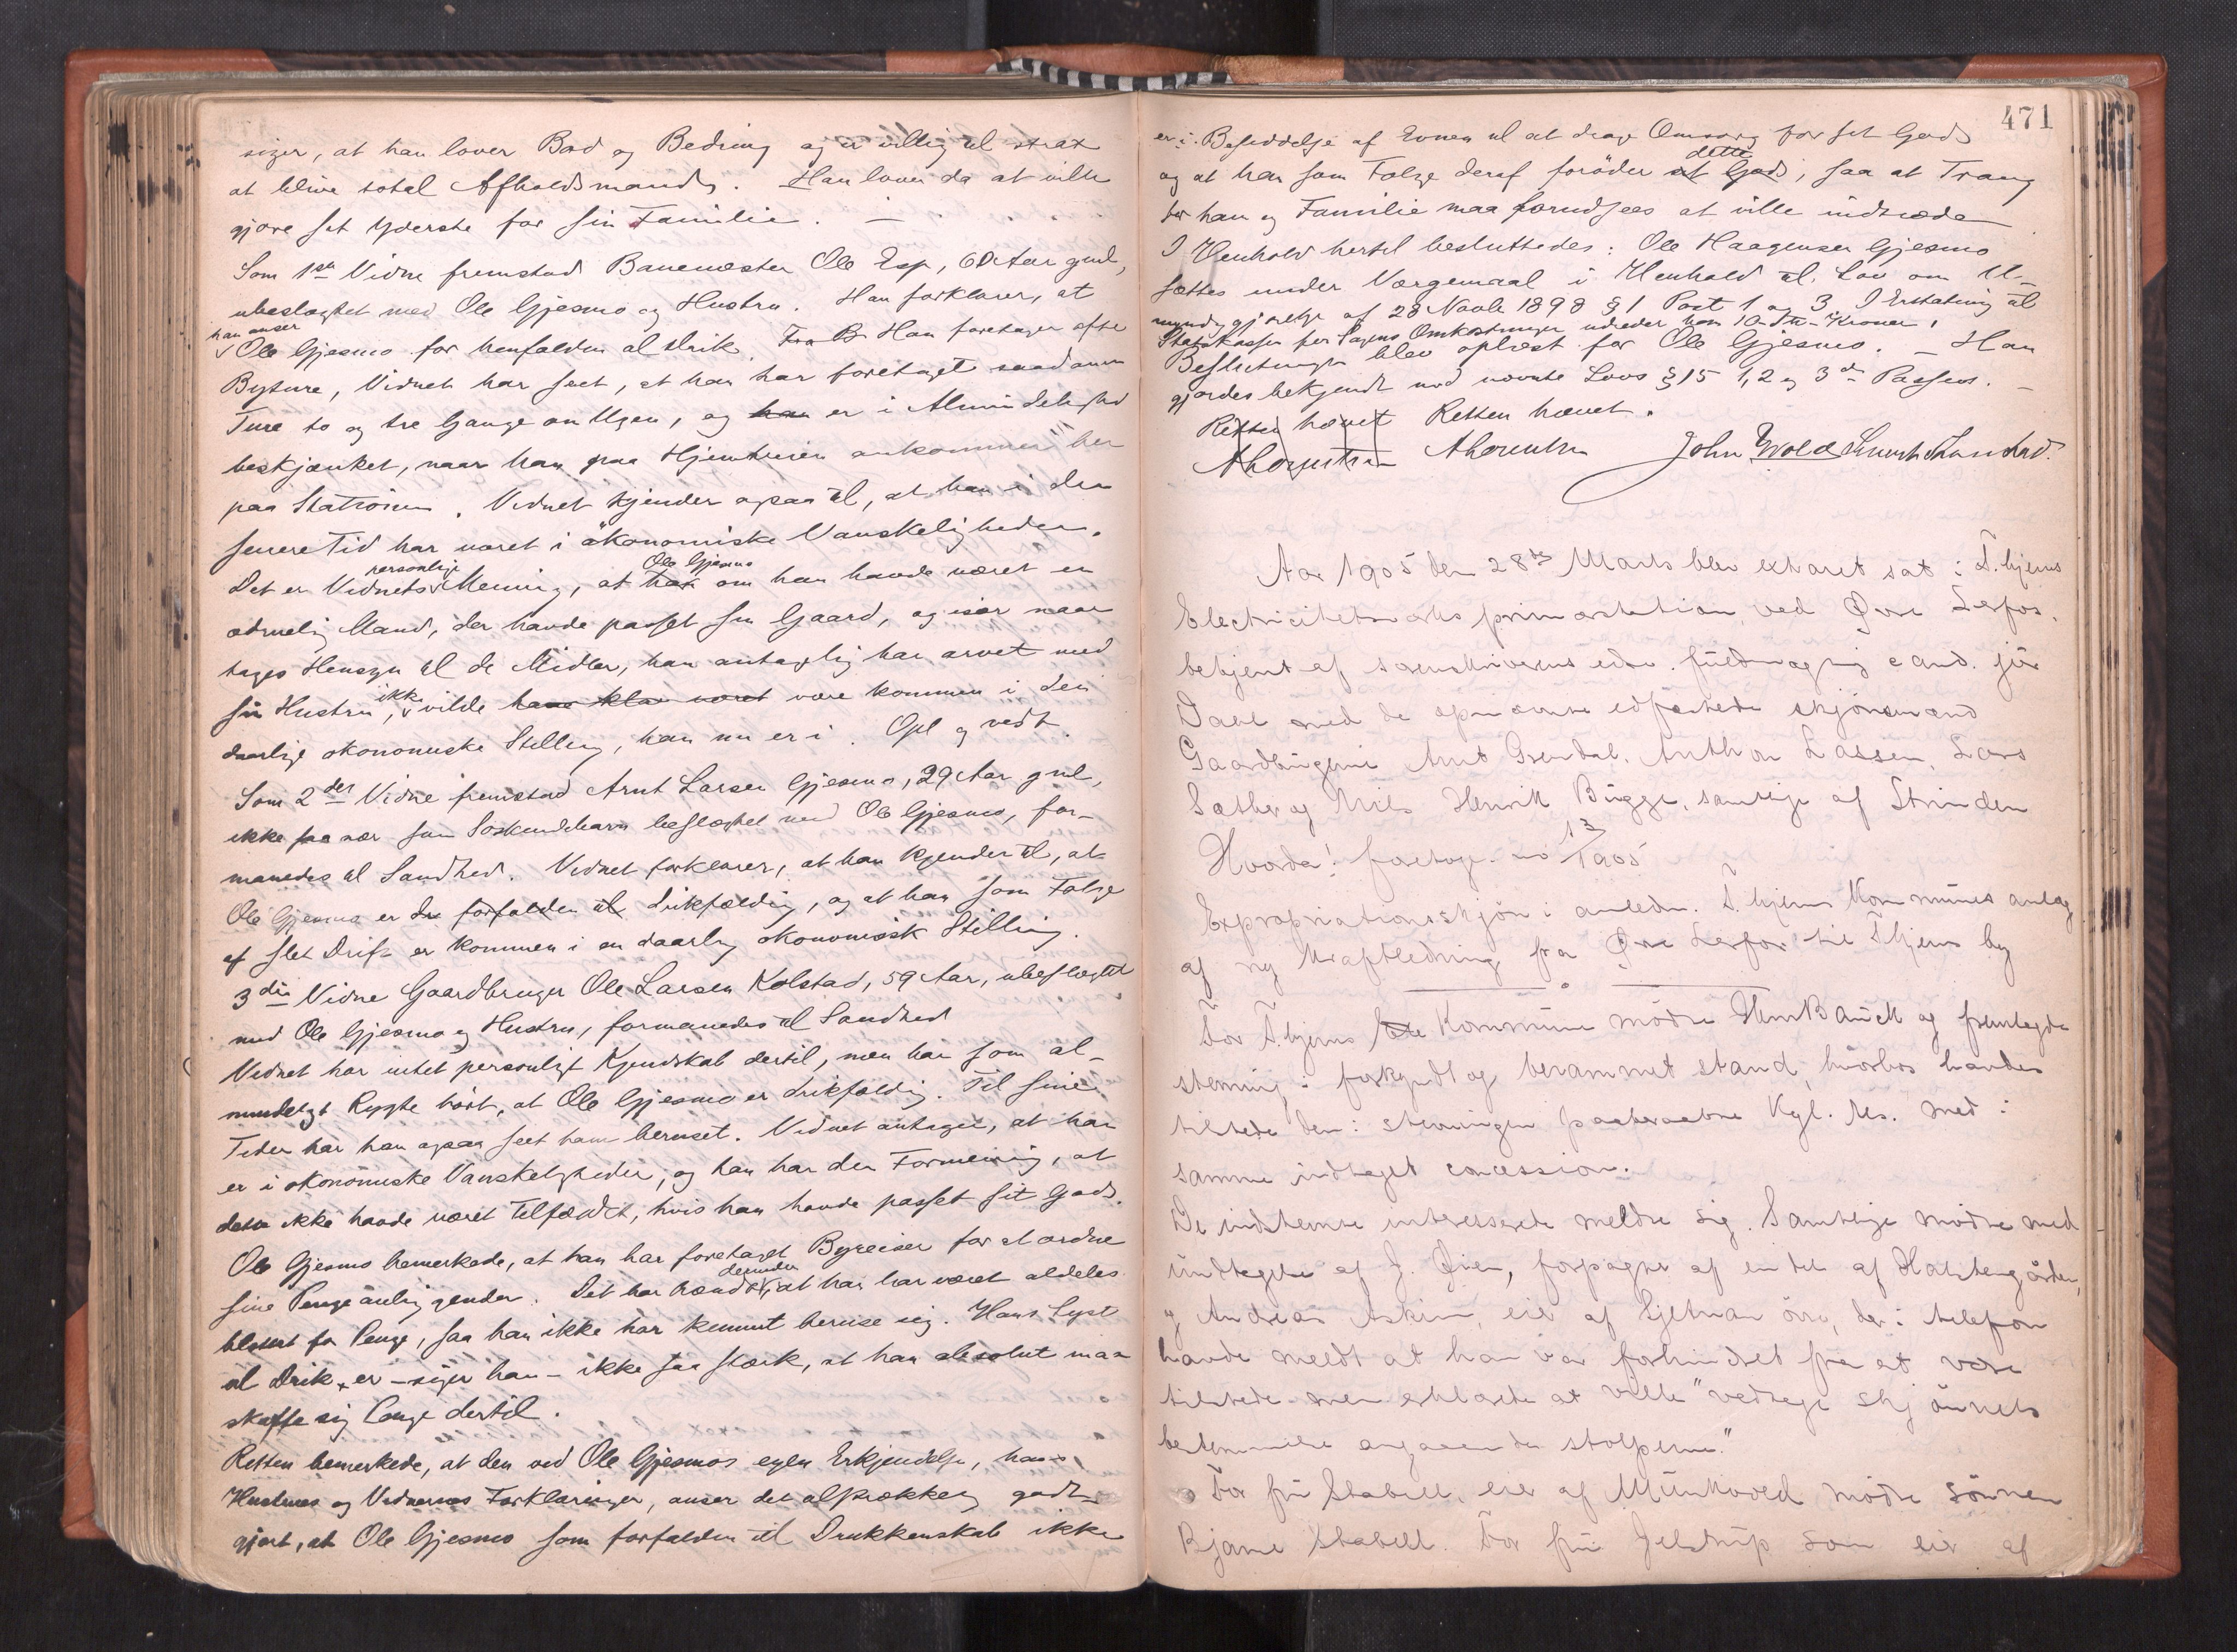 siger, at han lover Bod og Bedring og er villig til strax
at blive total Afholdsmand. Han lover da at ville
gjøre sit Yderste for sin Familie. —
Som 1ste Vidne fremstod Banemester Ole Esp, 60 Aar gml,
ubeslægtet med Ole Gjesmo og Hustru. Han forklarer, at
han anser
Ole Gjesmo for henfalden til Drik. Han foretager ofte
Byture, Vidnet har seet, at han har foretaget saadanne
Ture to og tre Gange om Ugen, og han er i Almindelighed
beskjænket, naar han paa Hjemturen ankommer her
paa Stationen. Vidnet kjender ogsaa til, at han i den
senere Tid har været i økonomiske Vanskeligheder.
personlige Ole Gjesmo
Det er Vidnets Mening, at han om han havde været en
ædruelig Mand, der havde passet sin Gaard, og især naar
tages Hensyn til de Midler, han antagelig har arvet med
ikke
sin Hustru, vilde være kommen i den
daarlige økonomiske Stilling, han nu er i. Opl og vedt.
Som 2det Vidne fremstod Arnt Larsen Gjesmo, 29 Aar gml,
ikke saa nær som Søskendebarn beslægtet med Ole Gjesmo, for-
manedes til Sandhed. Vidnet forklarer, at han kjender til, at
Ole Gjesmo er forfalden til drikfældig, og at han som Følge
af slet Drift er kommen i en daarlig økonomisk Stilling.
3die Vidne Gaardbruger Ole Larsen Kolstad, 59 Aar, ubeslægtet
med Ole Gjesmo og Hustru, formanedes til Sandhed
Vidnet har intet personligt Kjendskab dertil, men har som al-
mindeligt Rygte hørt, at Ole Gjesmo er drikfældig. Til sine
Tider har han ogsaa seet ham beruset. Vidnet antager, at han
er i økonomiske Vanskeligheder, og han har den Formening, at
dette ikke havde været Tilfældet, hvis han havde passet sit Gods.
Ole Gjesmo bemerkede, at han har foretaget Byreiser for at ordne
derunder
sine Pengeanliggender. Det har hændt, at han har været aldeles
blottet for Penge, saa han ikke har kunnet beruse sig. Hans Lyst
til Drik er – siger han – ikke saa stærk, at han absolut maa
skaffe sig Penge dertil.
Retten bemerkede, at den ved Ole Gjesmos egen Erkjendelse, hans
Hustrues og Vidnernes Forklaringer, anser det tilstrækkelig godt-
gjort, at Ole Gjesmo som forfalden til Drukkenskab ikke
471
er i Besiddelse af Evnen til at drage Omsorg for sit Gods
dette
og at han som Følge deraf forøder Gods, saa at Trang
for han og Familie maa forudsees at ville indtræde
I Henhold hertil besluttedes: Ole Haagensen Gjesmo
sættes under Værgemaal i Henhold til Lov om U-
myndiggjørelse af 28 Novbr 1898 § 1 Post 1 og 3. I Erstatning til
Statskassen for Sagens Omkostninger udreder han 10 – ti – Kroner.
Beslutningen blev oplæst for Ole Gjesmo. – Han
gjordes bekjendt med nævnte Lovs § 15 1, 2 og 3die Passus. –
Retten hævet Retten hævet.
John Wold
Aar 1905 den 28de Marts blev extraret sat i T.hjems
Electricitetsverks primærstation ved Øvre Lerfos,
betjent af sorenskriverens edsv. fuldmægtig cand. jur
Dahl med de opnævnte edfæstede skjønsmænd
Gaardbrugerne Arnt Grendal, Anthon Lassen, Lars
Sæther og Nils Henrik Bugge, samtlige af Strinden
Hvorda! foretoges no 13/1905
Expropriationsskjøn i anledn. T.hjems Kommunes anlæg
af ny Kraftledning fra Øvre Lerfos til T.hjems by
For T.hjems Kommune mødte Bauck og fremlagde
stevning i forkyndt og berammet stand, hvorhos havdes
tilstede den i stevningen paaberaabte Kgl. Res. med i
samme indtaget concession.
De indstevnte interesserede meldte sig. Samtlige mødte med
undtagelse af J. Øien, forpagter af en del af Halstengården,
og Andreas Askim, eier af Sjetnan øvre, der i telefon
havde meldt at han var forhindret fra at være
tilstede men erklærte at ville "vedtage skjønnets
bestemmelse angaaende stolperne."
For fru Stabell, eier af Munkvold mødte sønnen
Bjarne Stabell. For fru Jelstrup som eier af